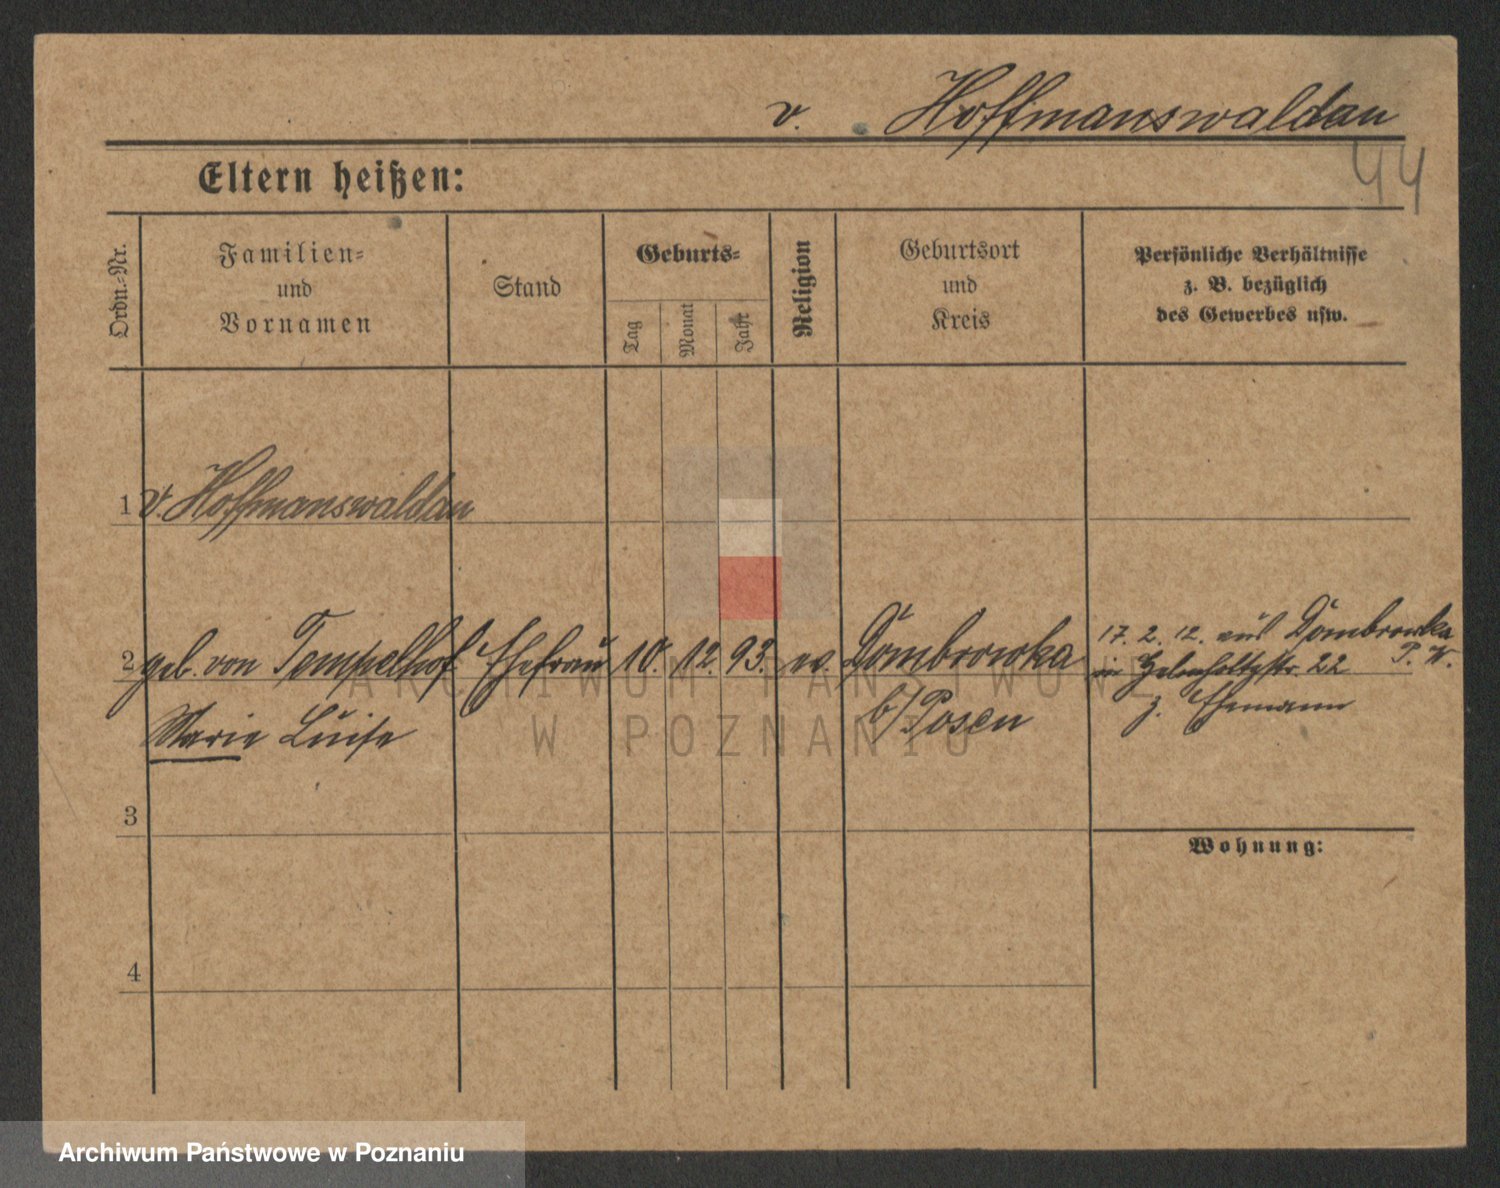 v. Hoffmanswaldau
44
Eltern heißen:
Ordn.-Nr.
Familien-
und
Vornamen
Stand
Geburts-
Tag
Monat
Jahr
Religion
Geburtsort
und
Kreis
Persönliche Verhältnisse
z. B. bezüglich
des Gewerbes usw.
1 v. Hoffmanswaldau
2 geb. von Tempelhof Ehefrau 10. 12. 93. ev. Dombrowka
Marie Luise
b/Posen
17. 2. 12. aus Dombrowka
P. W.
in Helmholtzstr. 22
z. Ehemann
3
Wohnung:
4
ARCHIWUM PAŃSTWOWE
W POZNANIU
Archiwum Państwowe w Poznaniu